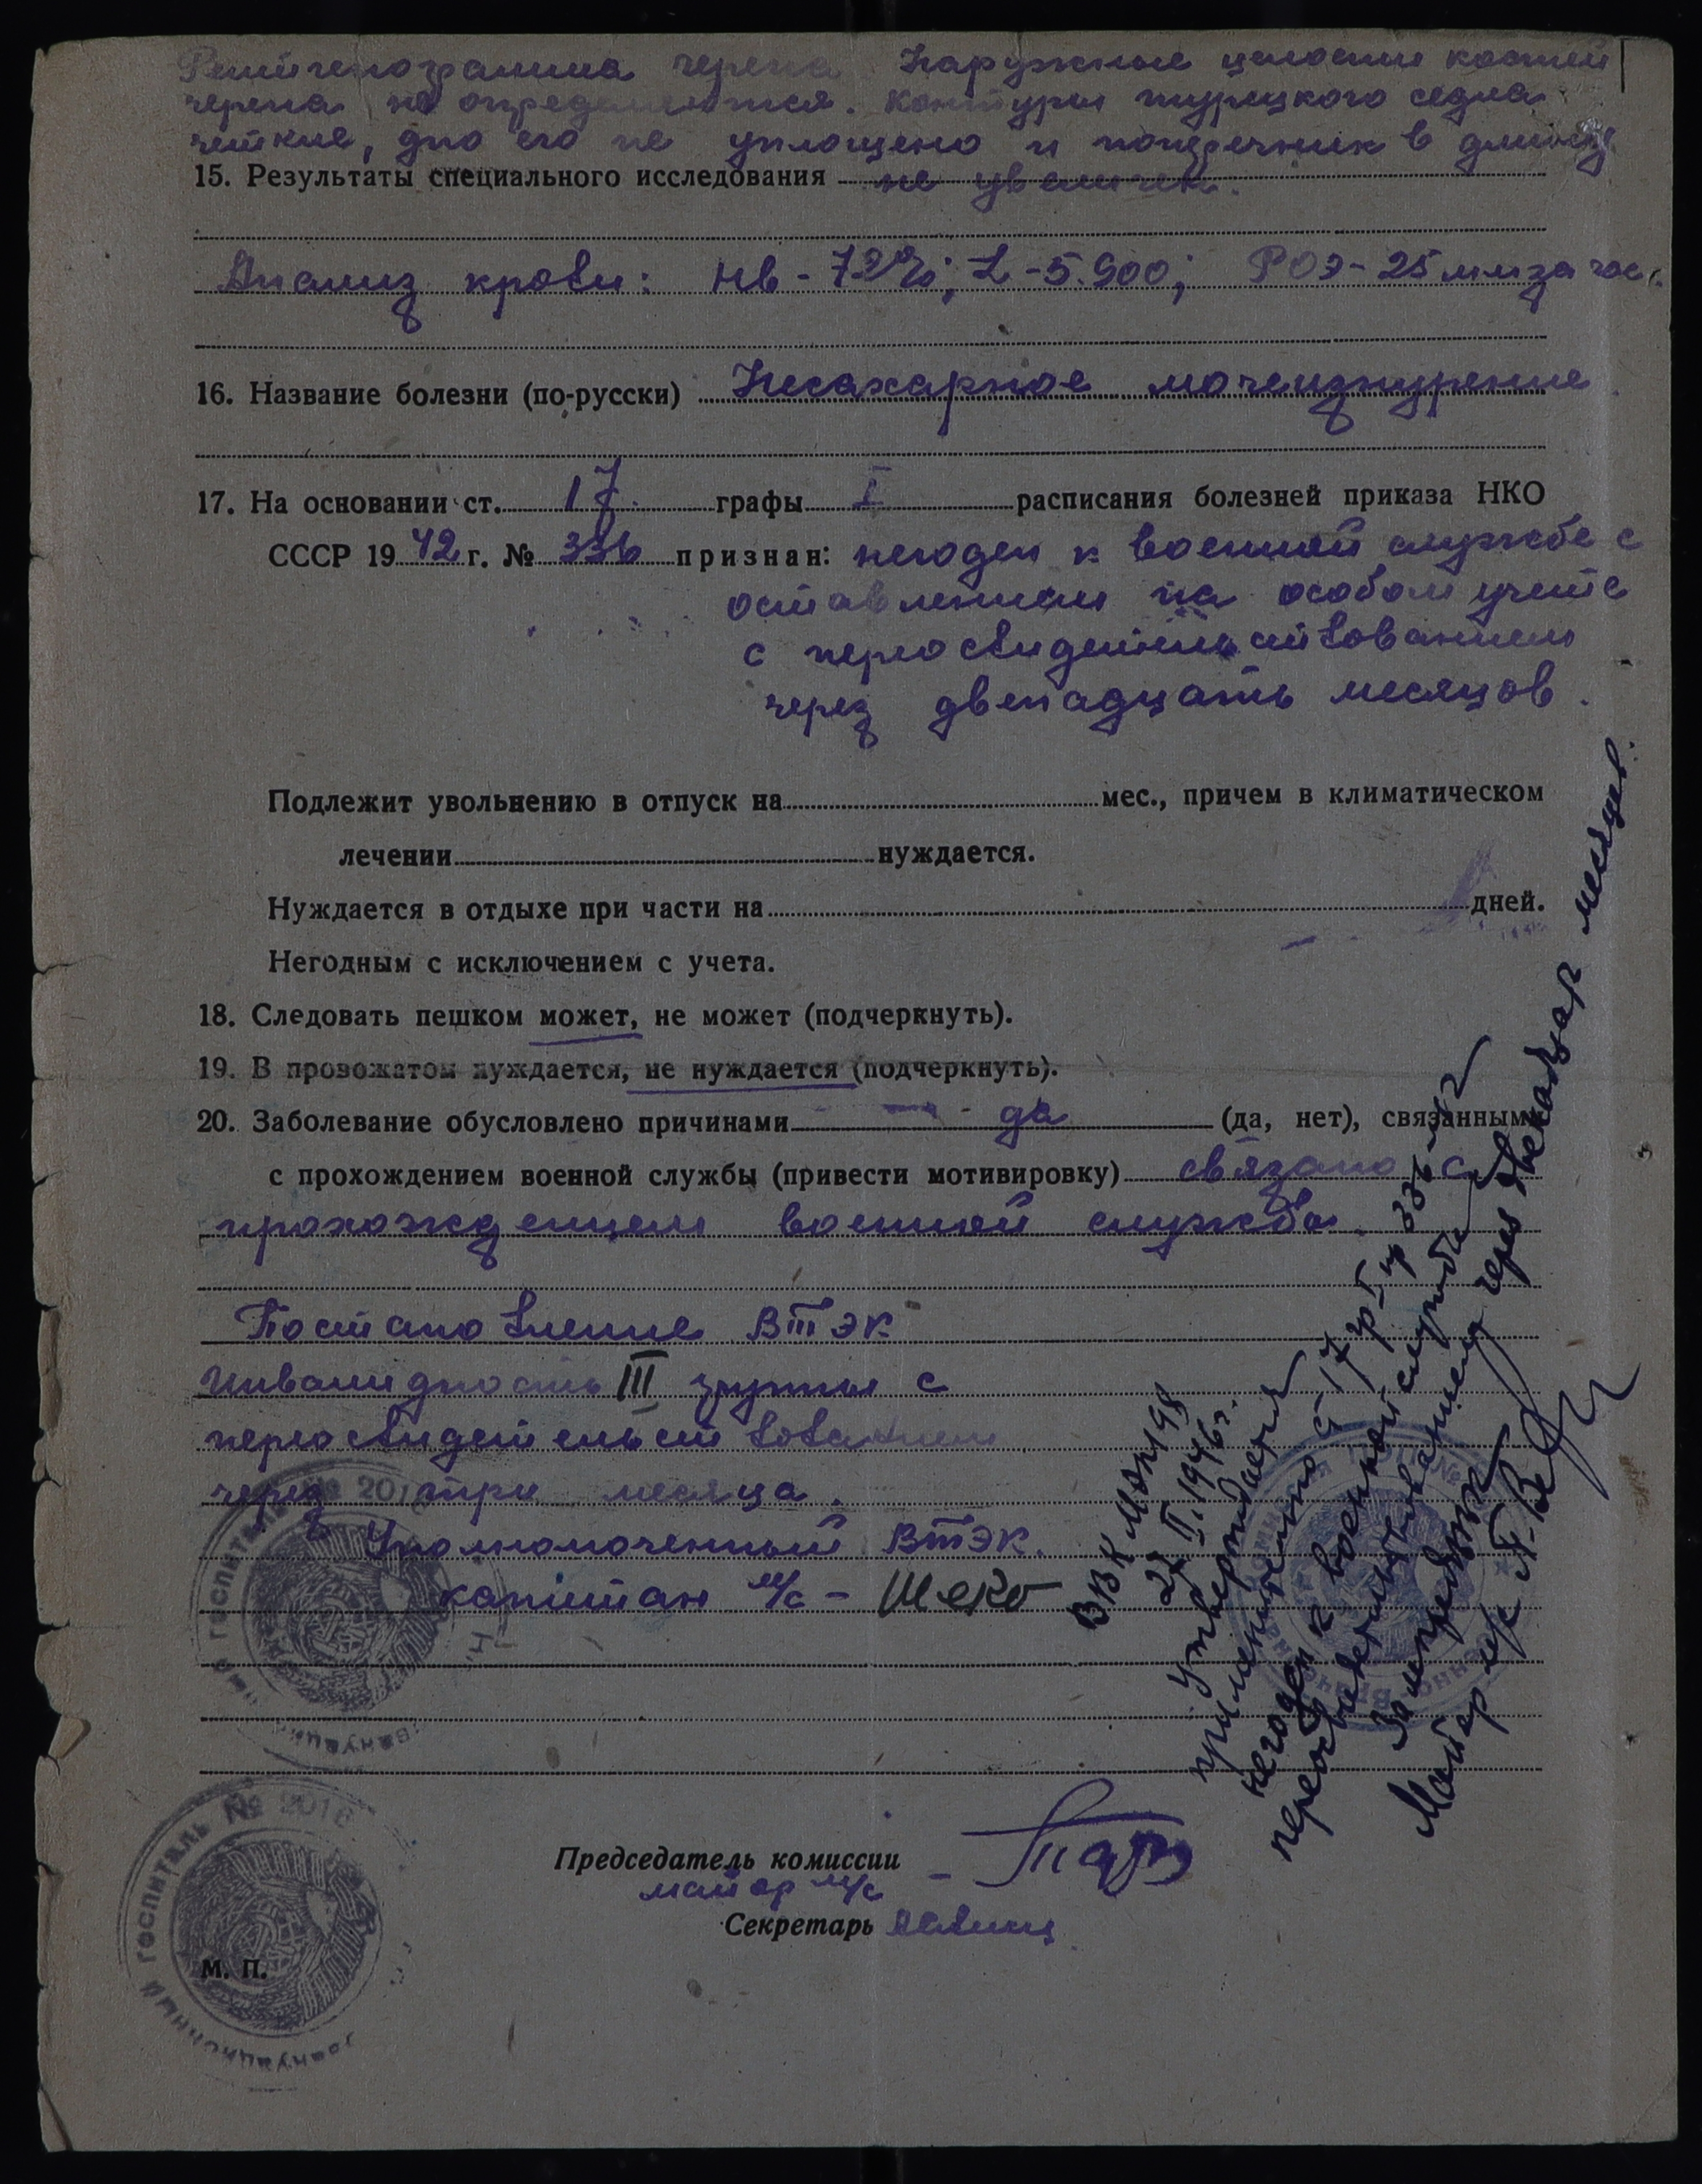 Рентгенограмма черепа Наружные целости костей
черепа не определяются. Контуры турецкого седла
четкие, дно его не уплощено и поперечник в длину
15. Результаты специального исследования не увеличен.
Анализ крови: Нв - 72%; L - 5.900; РОЭ - 25 мм за час.
16. Название болезни (по-русски) Несахарное мочеизнурение
17. На основании ст. 17. графы I расписания болезней приказа НКО
СССР 1942 г. № 336 признан: негоден к военной службе с
оставлением на особом учете
с переосвидетельствованием
через двенадцать месяцов.
Подлежит увольнению в отпуск на мес., причем в климатическом
лечении нуждается.
Нуждается в отдыхе при части на дней.
Негодным с исключением с учета.
18. Следовать пешком может, не может (подчеркнуть).
19. В провожатом нуждается, не нуждается (подчеркнуть).
20. Заболевание обусловлено причинами - да (да, нет), связанными
с прохождением военной службы (привести мотивировку) связано с
прохождением военной службы.
Постановление ВТЭК
Инвалидность III группы с
переосвидетельствованием
через три месяца.
Уполномоченный ВТЭК.
капитан м/с -
ВВК МЭП 198
II.1946г.
Утверждается
применительно ст 17 гр I пр 336-42
негоден к военной службе с
переосвидетельствованием через двенадцат месяцев.
Зам.предввк
Майор м/с
Председатель комиссии
майор м/с -
Секретарь
М. П.
ГОСПИТАЛЬ № 2016